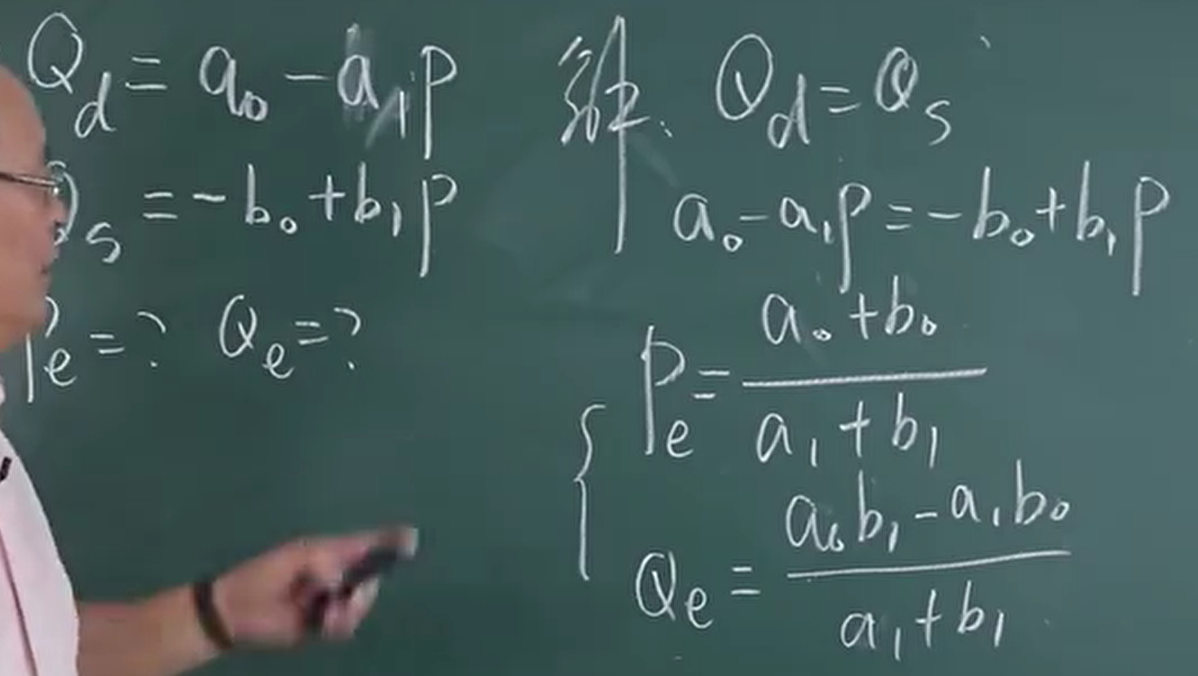 Qd = a₀ - a₁P
Qs = -b₀ + b₁P
Pe = ? Qe = ?
解: Qd = Qs
a₀ - a₁P = -b₀ + b₁P
Pe = (a₀ + b₀)/(a₁ + b₁)
Qe = (a₀b₁ - a₁b₀)/(a₁ + b₁)